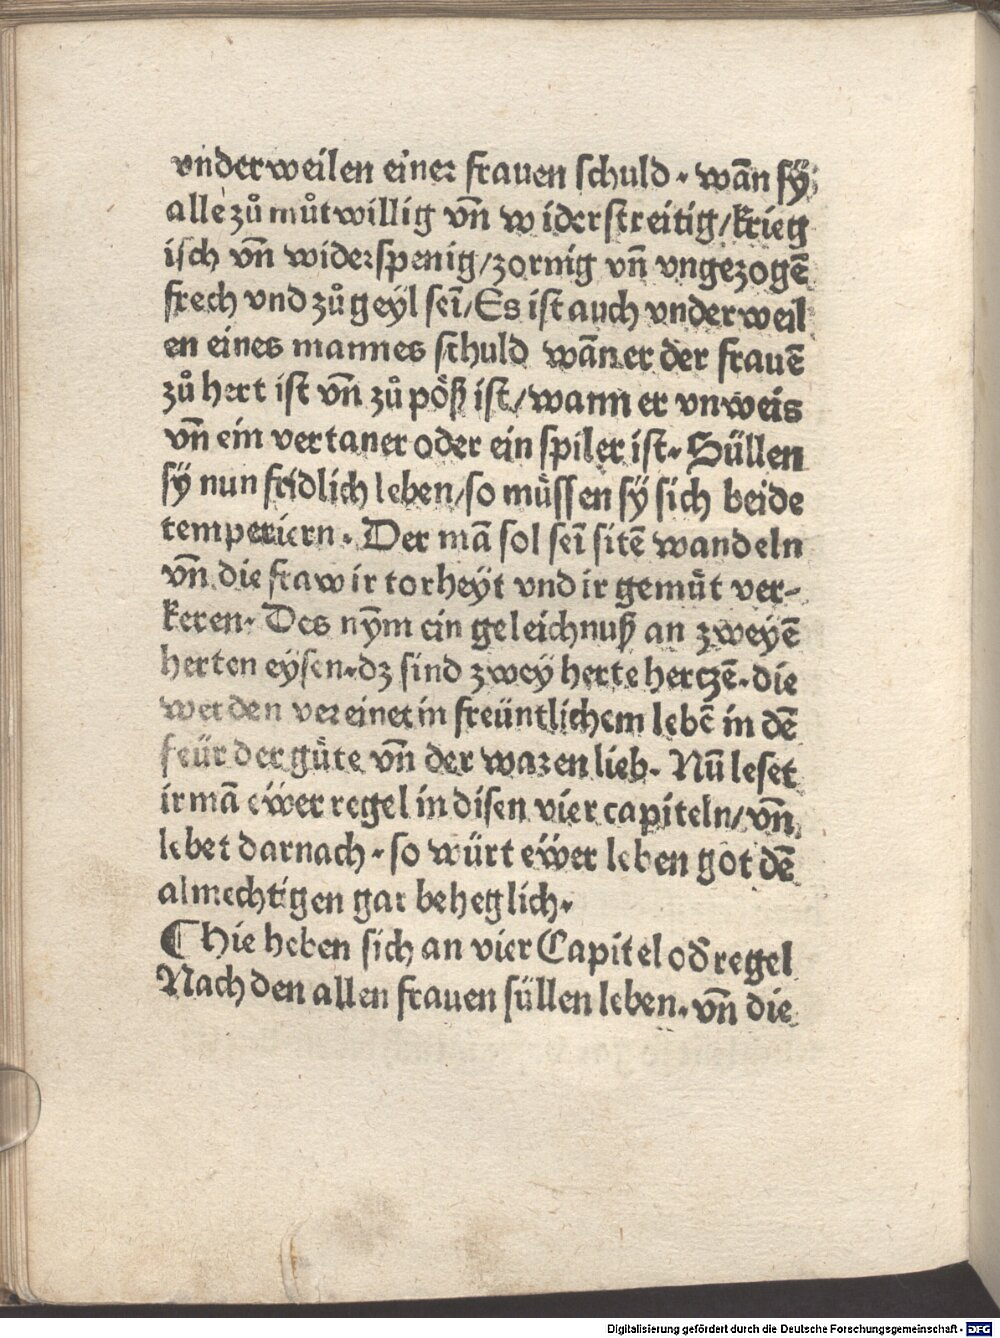 vnderweilen einer frauen schuld. wãn sÿ
alle zů můtwillig vñ widerstreitig/krieg
isch vñ widerspenig/zornig vñ vngezogẽ
frech vnd zů geyl seĩ/Es ist auch vnderweil
en eines mannes schuld wãn er der frauẽ
zů hert ist vñ zů pöß ist/wann er vnweis
vñ ein vertaner oder ein spiler ist. Süllen
sÿ nun fridlich leben/so müssen sÿ sich beide
temperiern. Der mã sol seĩ sitẽ wandeln
vñ die fraw ir torheyt vnd ir gemüt ver-
keren. Des nym̄ ein geleichnuß an zweyẽ
herten eysen. dz sind zwey herte hertzẽ. die
werden vereinet in freüntlichem lebẽ in dẽ
feür der güte vñ der waren lieb. Nũ leset
ir mã eẅer regel in disen vier capiteln/vñ
lebet darnach. so würt eẅer leben got dẽ
almechtigen gar beheglich.
¶ Hie heben sich an vier Capitel od̄ regel
Nach den allen frauen süllen leben. vñ die
Digitalisierung gefördert durch die Deutsche Forschungsgemeinschaft - DFG